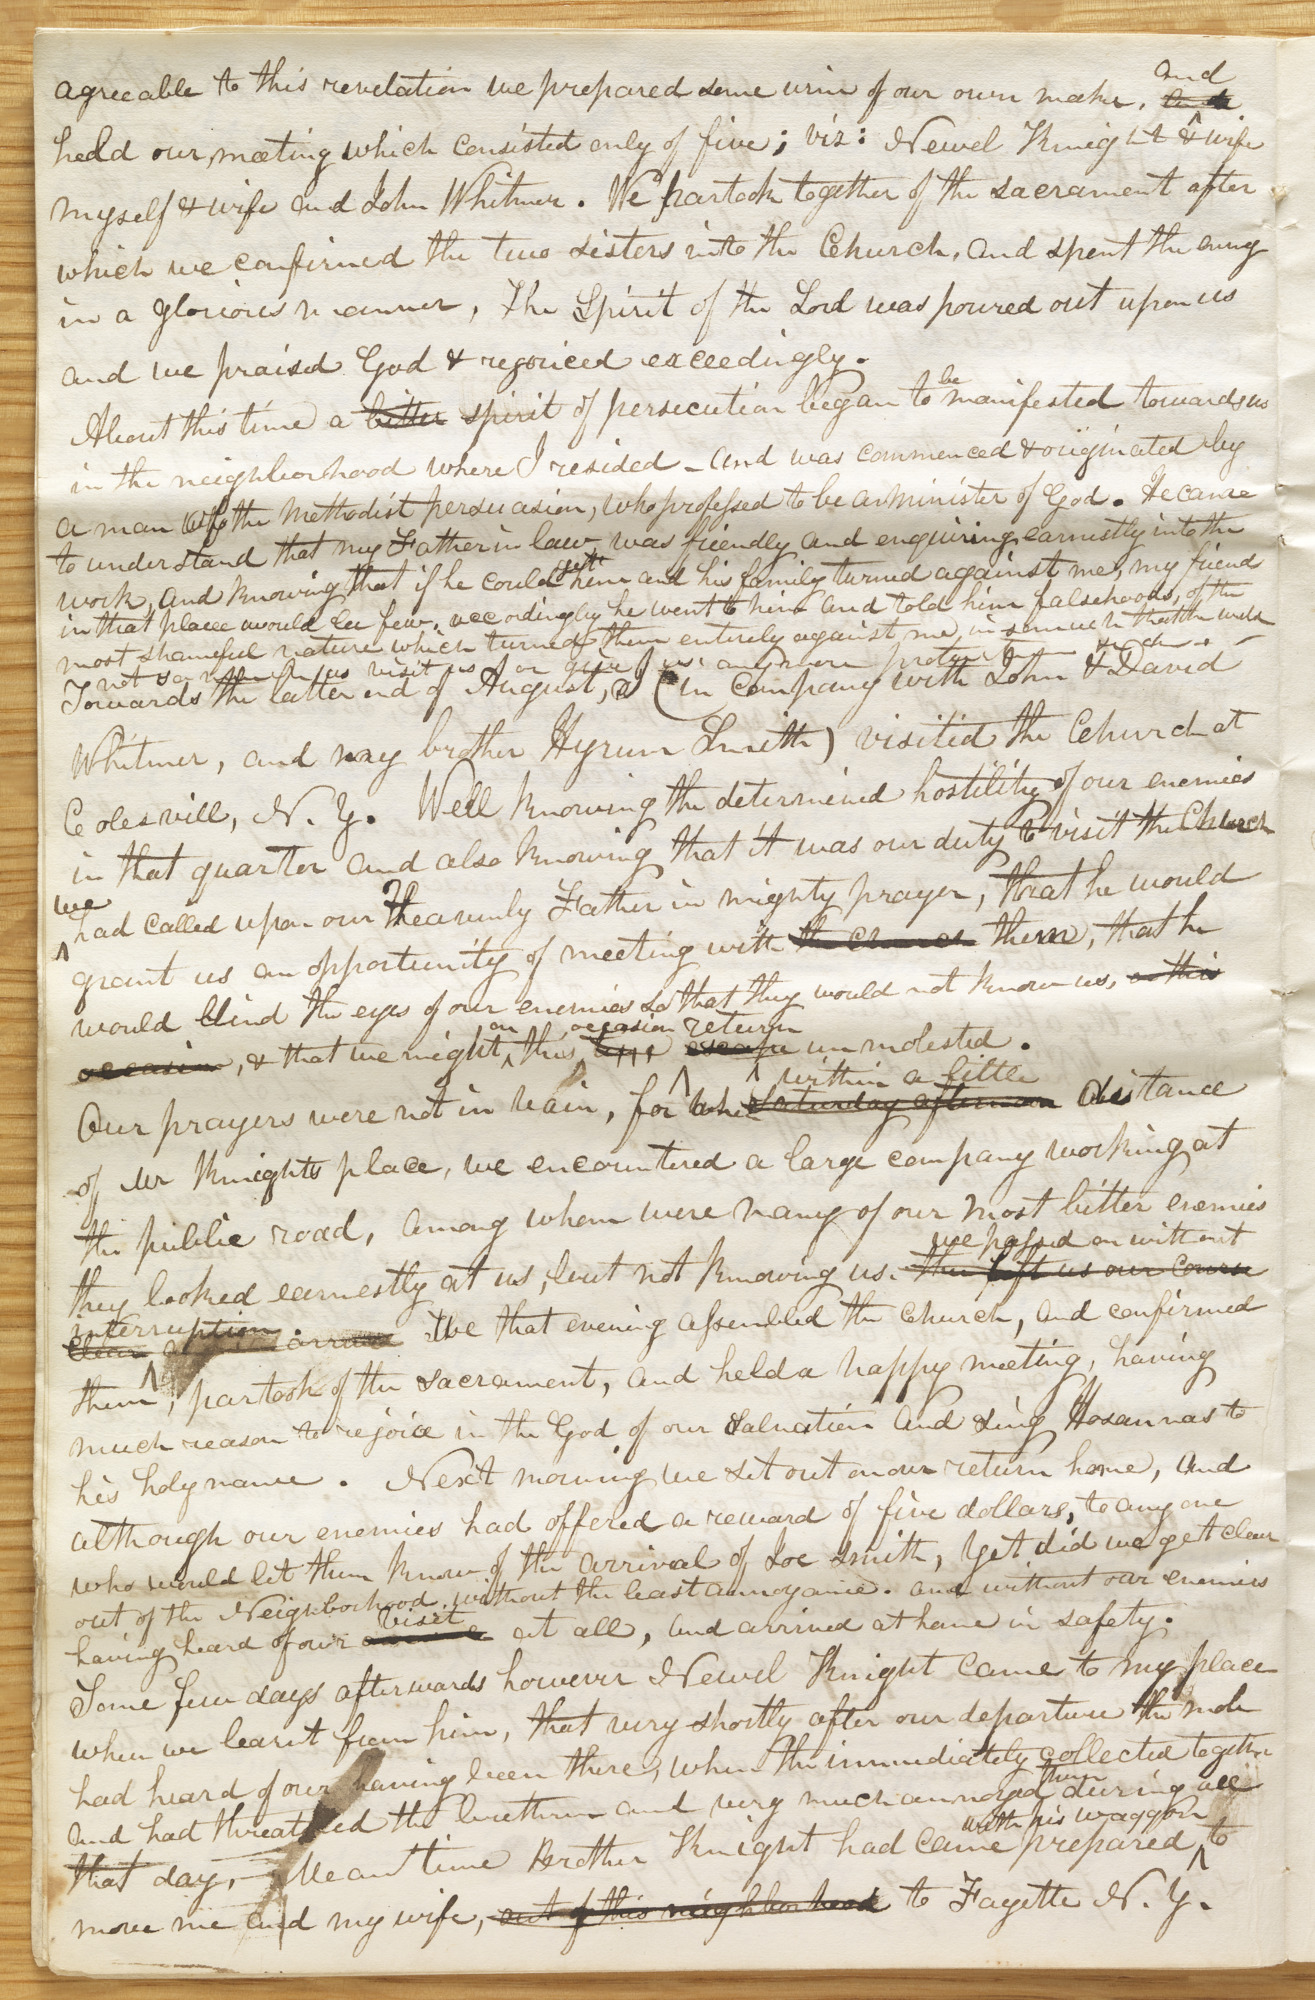 and
agreeable to this revelation we prepared some wine of our own make, and
held our meeting which consisted only of five; viz: Newel Knight & wife
myself & wife and John Whitmer. We partook together of the sacrament after
which we confirmed the two sisters into the Church, and spent the evning
in a glorious manner, The Spirit of the Lord was poured out upon us
and we praised God & rejoiced exceedingly.
About this time a bitter spirit of persecution began to be manifested towards us
in the neighborhood where I resided - and was commenced & originated by
a man of the Methodist persuasion, who professed to be a minister of God. He came
to understand that my Father in law was friendly and enquiring earnestly into the
work, and knowing that if he could get him and his family turned against me, my friends
in that place would be few, accordingly he went to him and told him falsehoods, of the
most shameful nature which turned them entirely against me, in somuch that the would
not so much as visit us, or give us any more protection &c
Towards the latter end of August, I (in company with John & David
Whitmer, and my brother Hyrum Smith) visited the Church at
Colesvill, N. Y. Well knowing the determined hostility of our enemies
in that quarter and also knowing that it was our duty to visit the Church
we
had called upon our Heavenly Father in mighty prayer, that he would
grant us an opportunity of meeting with the church them, that he
would blind the eyes of our enemies so that they would not know us, on this
on occasion return
occasion, & that we might this escape unmolested.
within a little
Our prayers were not in vain, for when Saturday afternoon distance
of Mr Knights place, we encountered a large company working at
the public road, among whom were many of our most bitter enemies
we passed on without
they looked earnestly at us, but not knowing us. they left us our course
interruption.
clear We that evening assembled the church, and confirmed
them, partook of the sacrament, and held a happy meeting, having
much reason to rejoice in the God of our Salvation and sing Hosannas to
his holy name. Next morning we set out on our return home, and
although our enemies had offered a reward of five dollars, to any one
who would let them know of the arrival of Joe Smith, yet did we get clear
out of the Neighborhood, without the least annoyance. and without our enemies
visit
having heard of our at all, and arrived at home in safety.
Some few days afterwards however Newel Knight came to my place
when we learnt from him, that very shortly after our departure the mob
had heard of our having been there, when the immediately collected together
them
and had threatened the brethren and very much annoyed during all
with his waggon
that day, Mean time Brother Knight had came prepared to
move me and my wife, out of this neighborhood to Fayette N. Y.